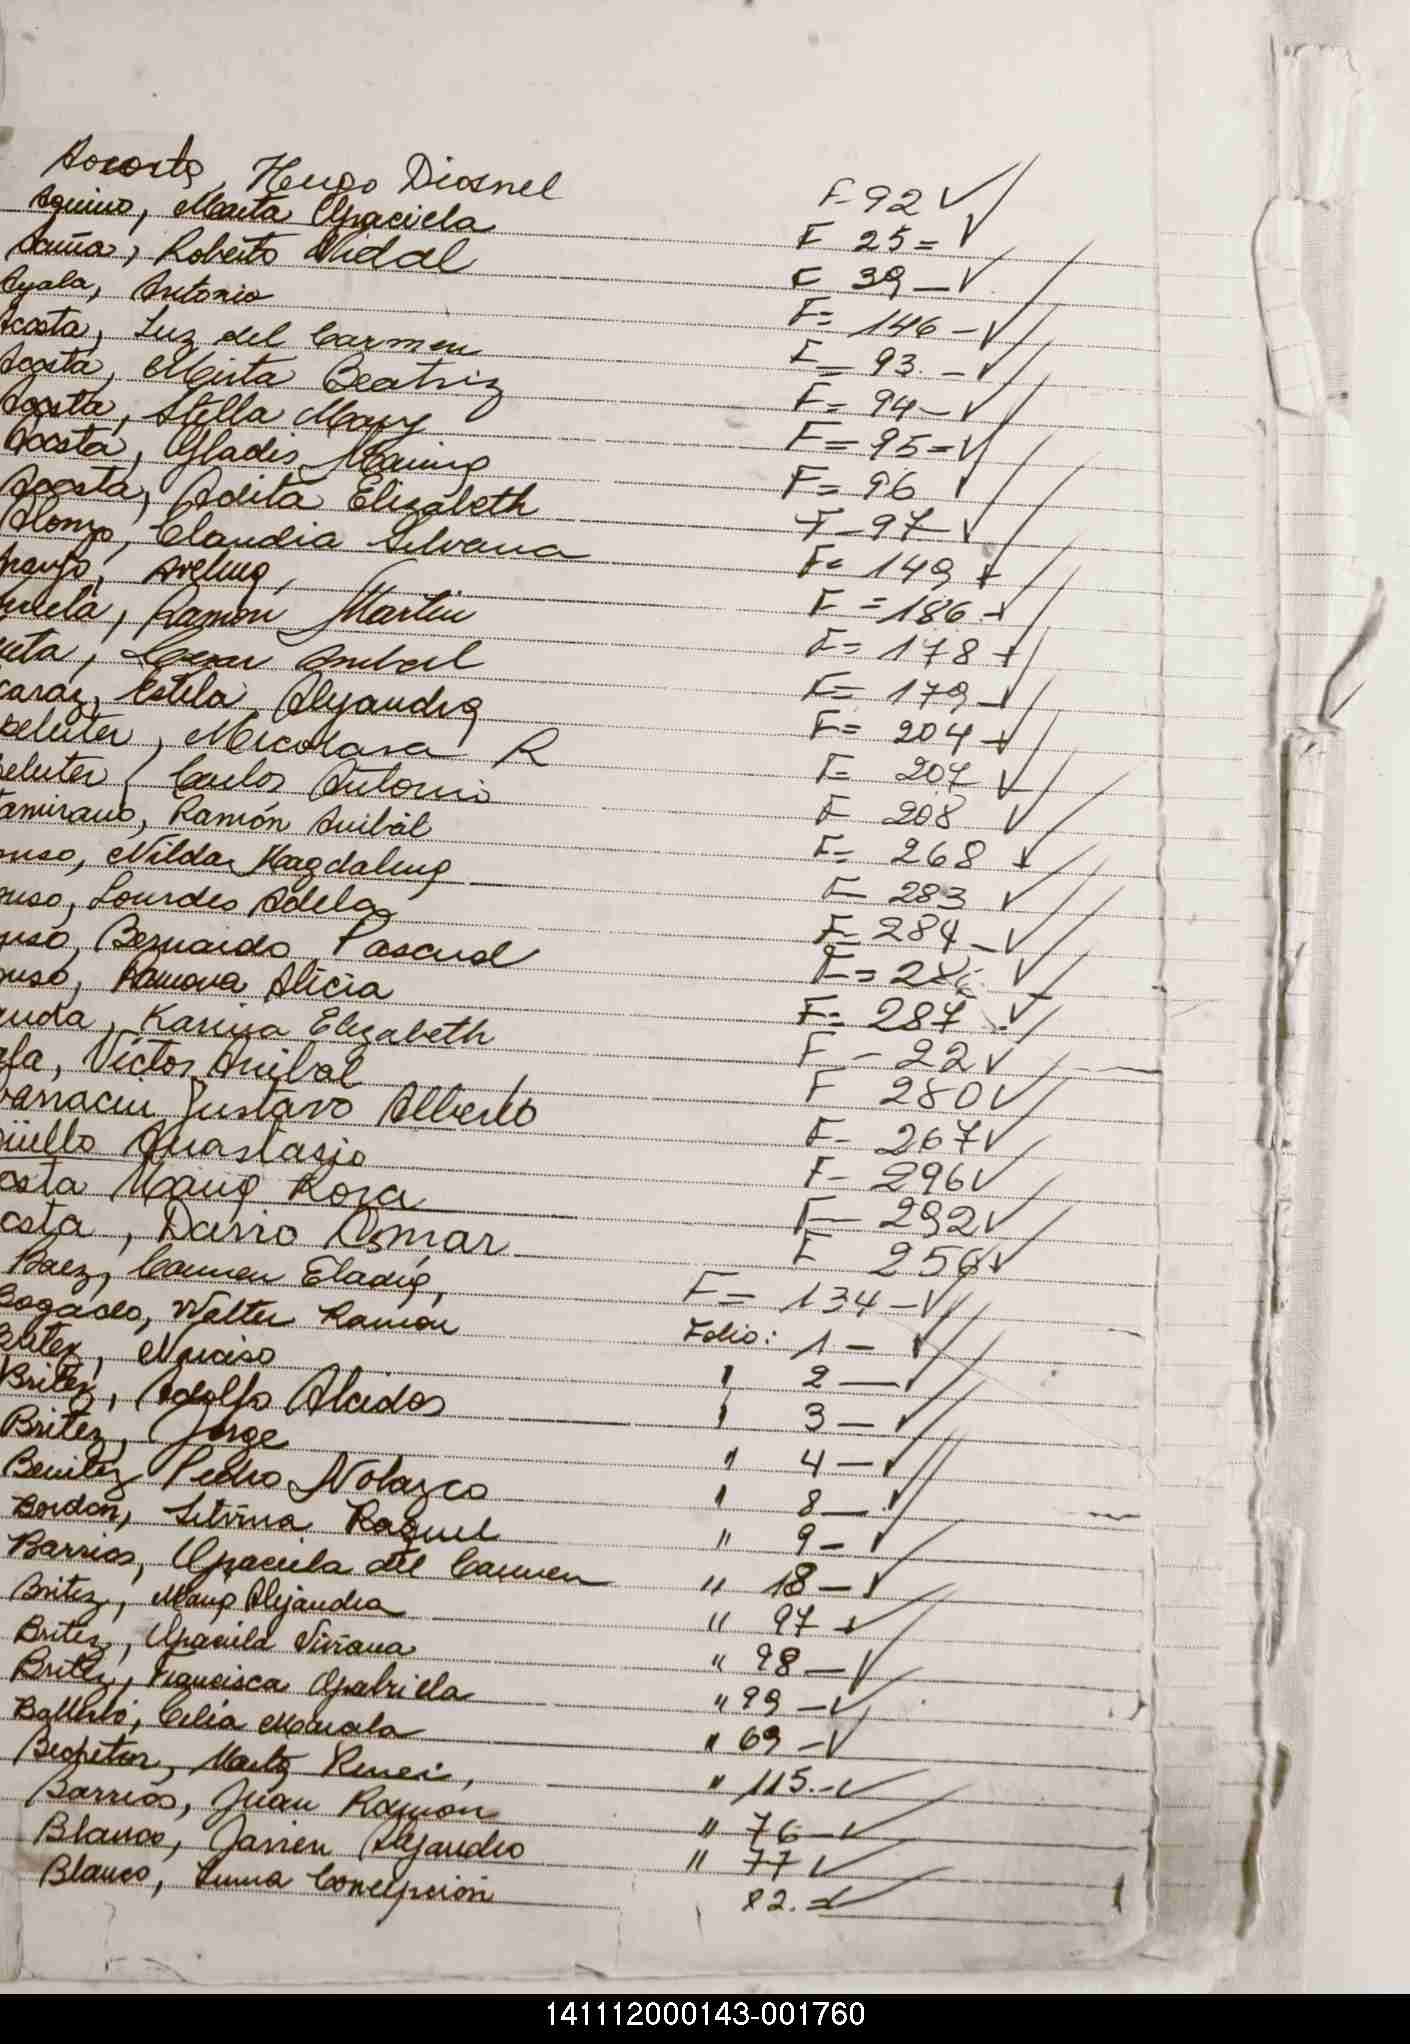 Acosta, Hugo Diosnel F-92
Aquino, Marta Graciela F 25=
Acuña, Roberto Vidal F 39—
Ayala, Antonio F= 146—
Acosta, Luz del Carmen F= 93.—
Acosta, Mirta Beatriz F= 94—
Acosta, Stella Mary F= 95=
Acosta, Gladis María F= 96
Acosta, Adita Elizabeth F-97—
Alonzo, Claudia Silvana F= 149
Araujo, Avelina, F=186—
Ramón Martin F= 178
Cesar Anibal F= 179—
caraz, Estela Alejandra F= 204
Nicolasa R F= 207
Carlos Antonio F 208
tamirano, Ramón Anibál F= 268
onso, Nilda Magdalena F- 283
onso, Lourdes Adela F= 284—
onso, Bernardo Pascual F=
onso, Ramona Alicia F= 287
anda, Karina Elizabeth F - 22
Víctor Anibal F 280
Gustavo Alberto F- 267
güello Anastasio F- 296
osta María Rosa F- 292
costa, Dario Osmar F 256
Baez, Carmen Eladia, F= 134—
Bogado, Walter Ramón Folio: 1—
Britez, Narciso " 2—
Britez, Adolfo Alcides " 3—
Britez, Jorge " 4—
Benitez Pedro Nolazco " 8—
Bordón, Silvina Raquel " 9—
Barrios, Graciela del Carmen " 18—
Britez, María Alejandra " 97
Britez, Graciela Viviana " 98—
Britez, Francisca Gabriela " 99—
Celia Marcela " 69—
Marta " 115.—
Barrios, Juan Ramon " 76—
Blanco, Javier Alejandro " 77
Blanco, Inma Concepción 82.=
141112000143-001760